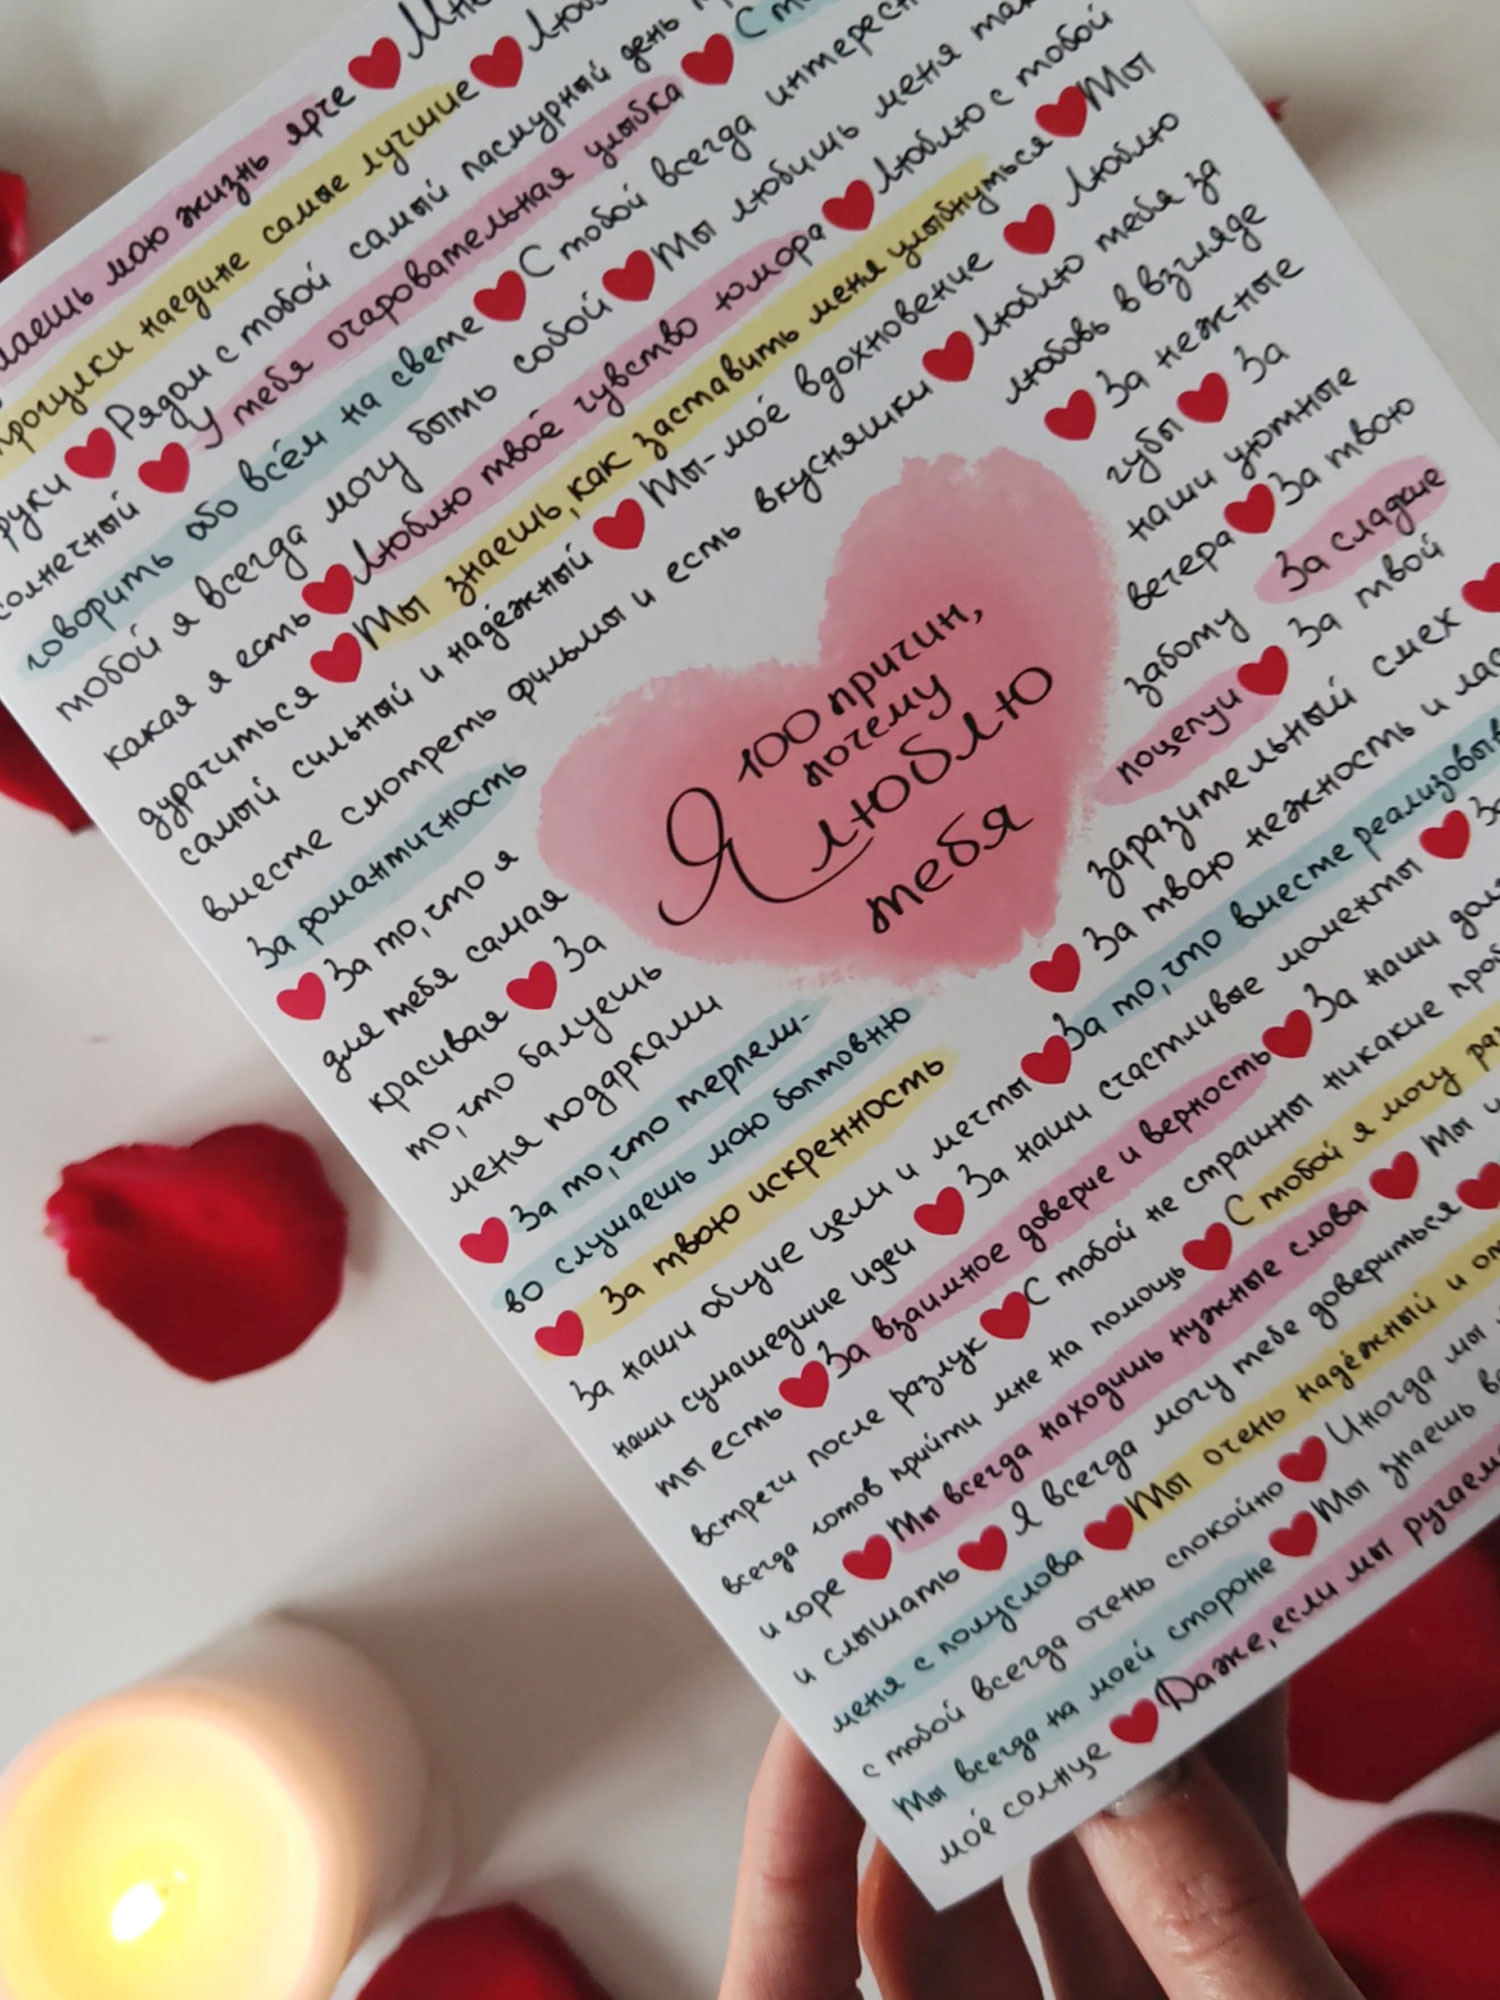 жизнь ярче ❤ Мне
прогулки наедине самые лучшие ❤ Люблю
руки ❤ Рядом с тобой самый пасмурный день
солнечный ❤ У тебя очаровательная улыбка ❤ С
говорить обо всём на свете ❤ С тобой всегда
тобой я всегда могу быть собой ❤ Ты любишь меня
какая я есть ❤ Люблю твоё чувство юмора ❤ Люблю с тобой
дурачиться ❤ Ты знаешь, как заставить меня улыбнуться ❤ Ты
самый сильный и надёжный ❤ Ты-моё вдохновение ❤ Люблю
вместе смотреть фильмы и есть вкусняшки ❤ Люблю тебя за
любовь в взгляде
❤ За нежные
губы ❤ За
наши уютные
вечера ❤ За твою
заботу За сладкие
поцелуи ❤ За твой
заразительный смех ❤
100 причин,
почему
Я люблю
тебя
За романтичность
❤ За то, что я
для тебя самая
красивая ❤ За
то, что балуешь
меня подарками
❤ За твою нежность и
❤ За то, что терпели-
во слушаешь мою болтовню
❤ За твою искренность
За наши общие цели и мечты ❤ За то, что вместе
наши сумашедшие идеи ❤ За наши счастливые моменты ❤ За
ты есть ❤ За взаимное доверие и верность ❤ За наши
встречи после разлук ❤ С тобой не страшны никакие
всегда готов прийти мне на помощь ❤ С тобой я могу
и горе ❤ Ты всегда находишь нужные слова ❤ Ты
и слышать ❤ Я всегда могу тебе довериться ❤
меня с полуслова ❤ Ты очень надёжный и
с тобой всегда очень спокойно ❤ Иногда мы
Ты всегда на моей стороне ❤ Ты знаешь
моё солнце ❤ Даже, если мы ругаемся